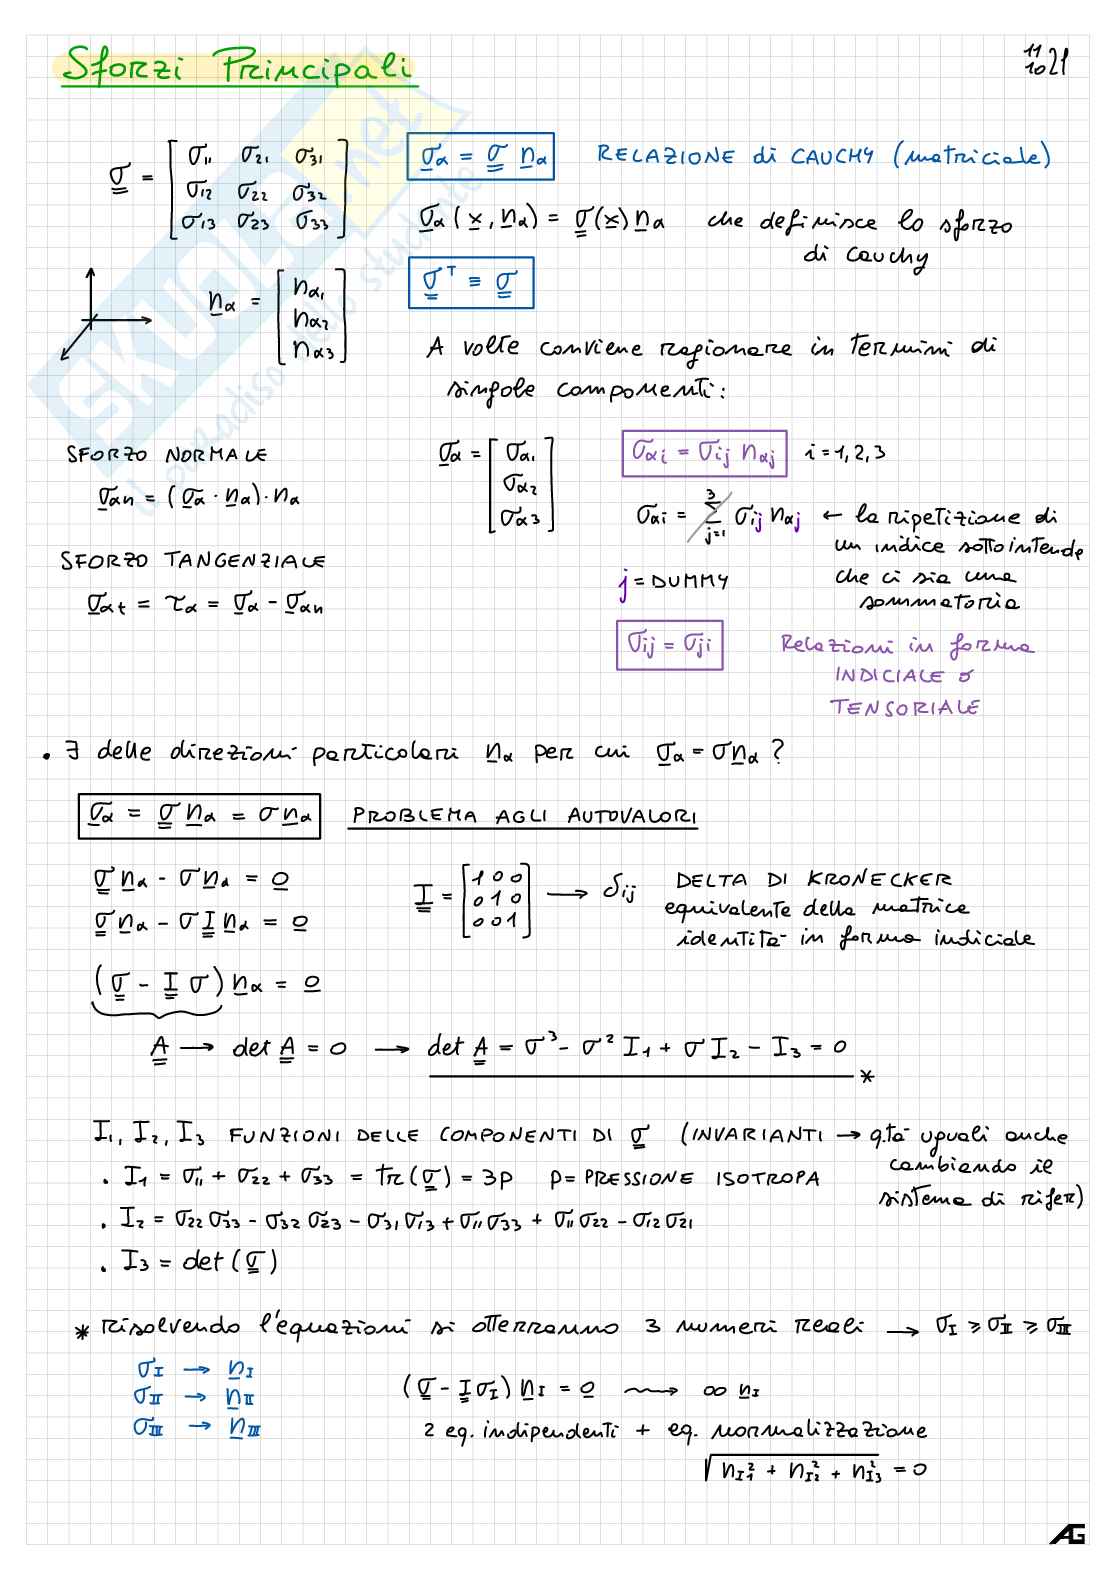 Sforzi Principali
11 10 21
σ = [σ11 σ21 σ31
σ12 σ22 σ32
σ13 σ23 σ33]
σα = σ nα RELAZIONE di CAUCHY (matriciale)
σα (x, nα) = σ(x) nα che definisce lo sforzo
di Cauchy
nα = [nα1
nα2
nα3]
σ^T ≡ σ
A volte conviene ragionare in termini di
singole componenti:
SFORZO NORMALE
σαn = (σα · nα) · nα
SFORZO TANGENZIALE
σαt = τα = σα - σαn
σα = [σα1
σα2
σα3]
σαi = σij nαj i = 1, 2, 3
σαi = Σ_{j=1}^{3} σij nαj ← la ripetizione di
un indice sottointende
che ci sia una
sommatoria
j = DUMMY
σij = σji
Relazioni in forma
INDICIALE o
TENSORIALE
• ∃ delle direzioni particolari nα per cui σα = σnα ?
σα = σ nα = σ nα PROBLEMA AGLI AUTOVALORI
σ nα - σ nα = 0
σ nα - σ I nα = 0
(σ - I σ) nα = 0
I = [1 0 0
0 1 0
0 0 1] → δij
DELTA DI KRONECKER
equivalente della matrice
identità in forma indiciale
A → det A = 0 → det A = σ³ - σ² I1 + σ I2 - I3 = 0 *
I1, I2, I3 FUNZIONI DELLE COMPONENTI DI σ (INVARIANTI → q.tà uguali anche
cambiando il
sistema di rifer)
• I1 = σ11 + σ22 + σ33 = tr(σ) = 3p p = PRESSIONE ISOTROPA
• I2 = σ22 σ33 - σ32 σ23 - σ31 σ13 + σ11 σ33 + σ11 σ22 - σ12 σ21
• I3 = det (σ)
* risolvendo l'equazioni si otterranno 3 numeri reali → σI ≥ σII ≥ σIII
σI → nI
σII → nII
σIII → nIII
(σ - I σI) nI = 0 ⇝ ∞ nI
2 eq. indipendenti + eq. normalizzazione
√(nI1² + nI2² + nI3²) = 0
AG
SKUOLA.net
il paradiso dello studente